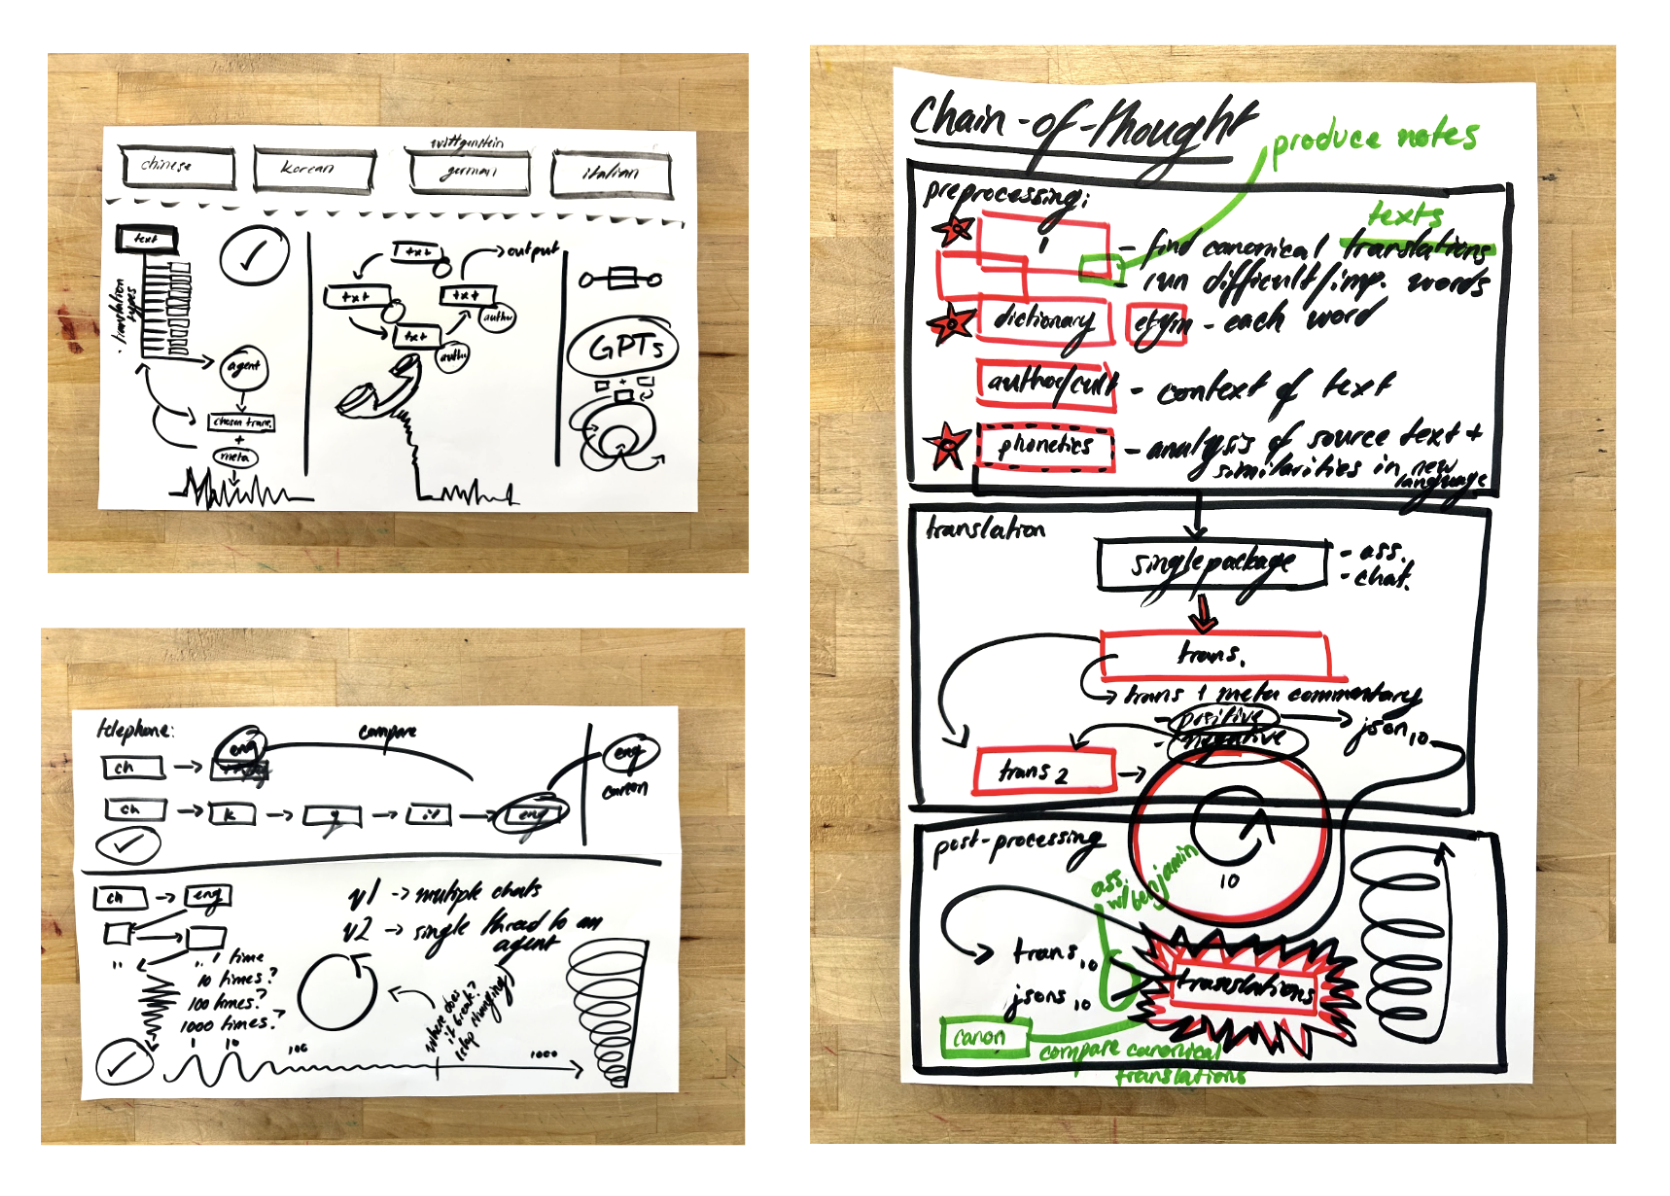 wittgenstein
chinese
korean
german
italian
text
translation types
agent
chosen trans.
+
meta
txt
output
txt
txt
author
txt
author
GPTs
+
telephone:
compare
eng
ch
eng
canon
ch
k
g
it
eng
ch
eng
v1 → multiple chats
v2 → single thread to an
agent
1 time
10 times?
100 times?
1000 times?
where does
it break?
stop changing?
1
10
100
1000
chain-of-thought
produce notes
preprocessing:
texts
1
- find canonical translations
- run difficult/imp. words
dictionary
etym - each word
author/cult - context of text
phonetics - analysis of source text +
similarities in new
language
translation
single package
- ass.
- chat.
trans.
trans + meta commentary
- positive → json 10
- negative
trans 2
post-processing
10
ass.
w/ benjamin
trans. 10
jsons 10
translations
canon
compare canonical
translations